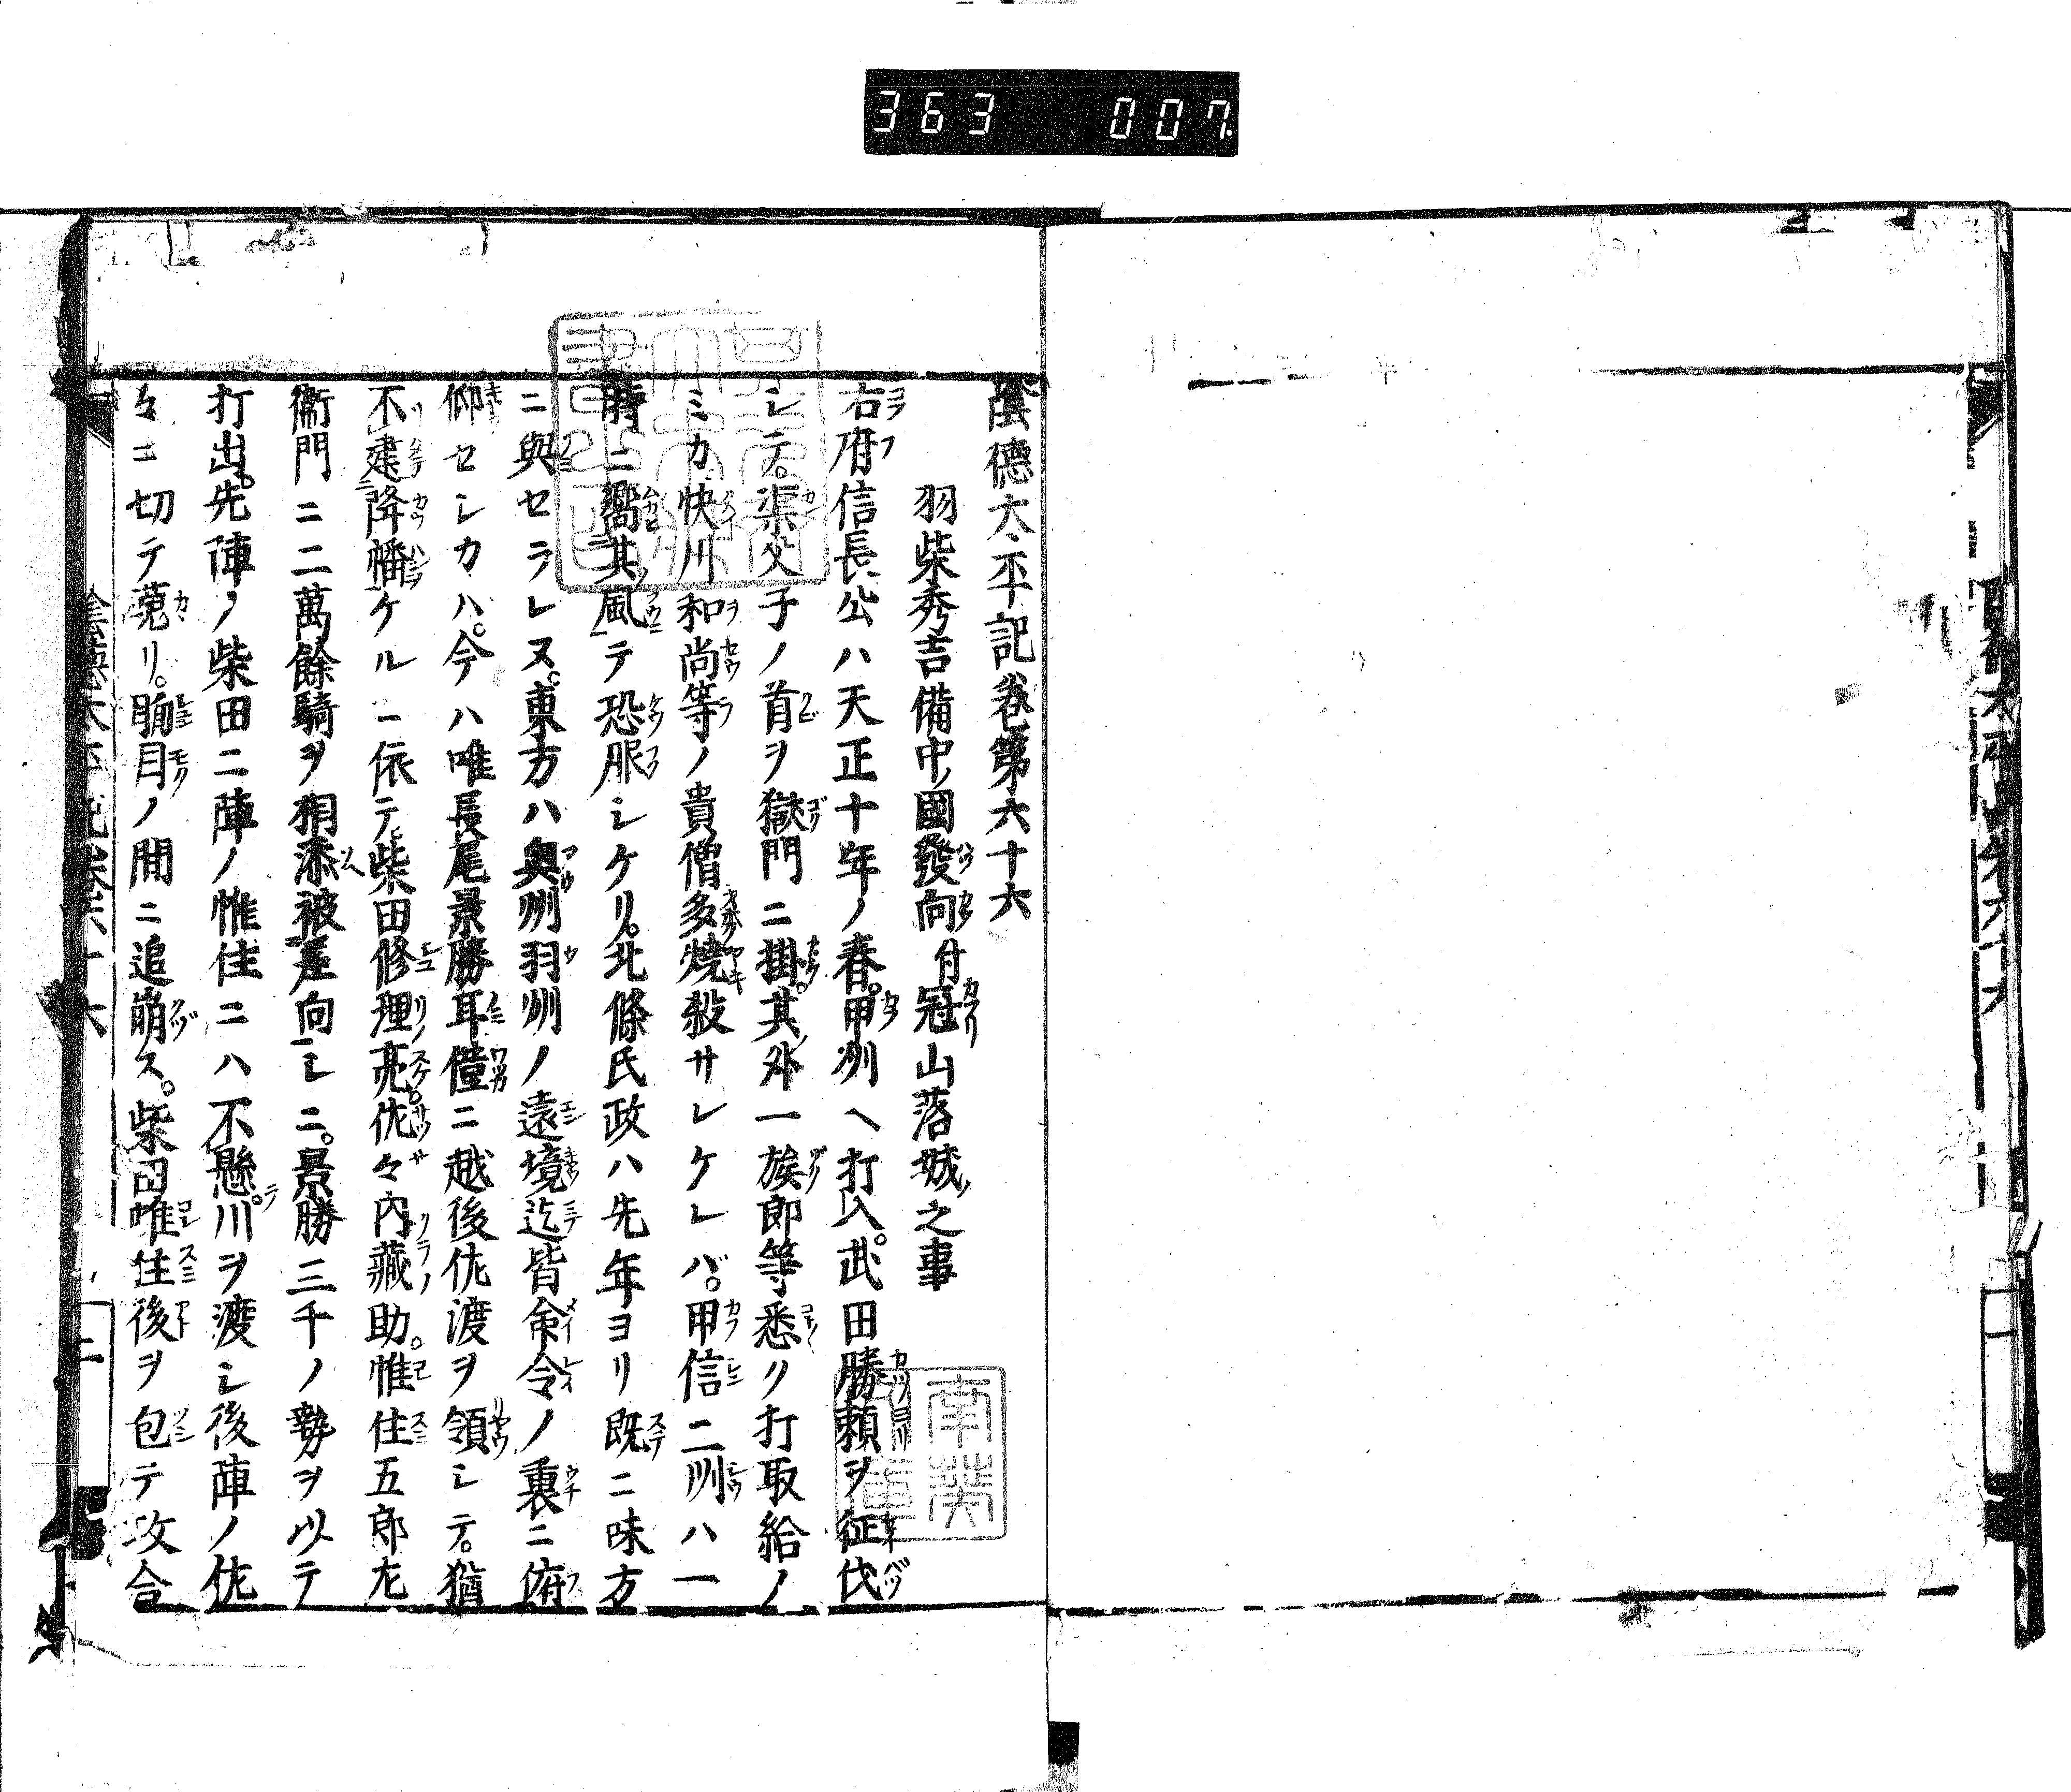 363 007
陰德太平記卷第六十六
羽柴秀吉備中國發向付冠山落城之事
右府信長公ハ天正十年ノ春。甲州ヘ打入。武田勝頼ヲ征伐
シテ。渠父子ノ首ヲ獄門ニ掛。其外一族郎等悉ク打取給ノ
ミカ。快川和尚等ノ貴僧多燒殺サレケレバ。甲信二州ハ一
時ニ嚮其風テ恐服シケリ。北條氏政ハ先年ヨリ既ニ味方
ニ與セラレヌ。東方ハ奥州羽州ノ遠境迄皆命令ノ裏ニ俯
仰セシカハ。今ハ唯長尾景勝耳僅ニ越後佐渡ヲ領シテ。猶
不建降幡ケルニ依テ柴田修理亮。佐々内藏助。惟住五郎左
衞門ニ二萬餘騎ヲ相添被差向シニ。景勝三千ノ勢ヲ以テ
打出。先陣ノ柴田二陣ノ惟住ニハ不懸。川ヲ渡シ後陣ノ佐
々ニ切テ蒐リ。胸目ノ間ニ追崩ス。柴田惟住後ヲ包テ攻合
陰德太平記卷六十六
二